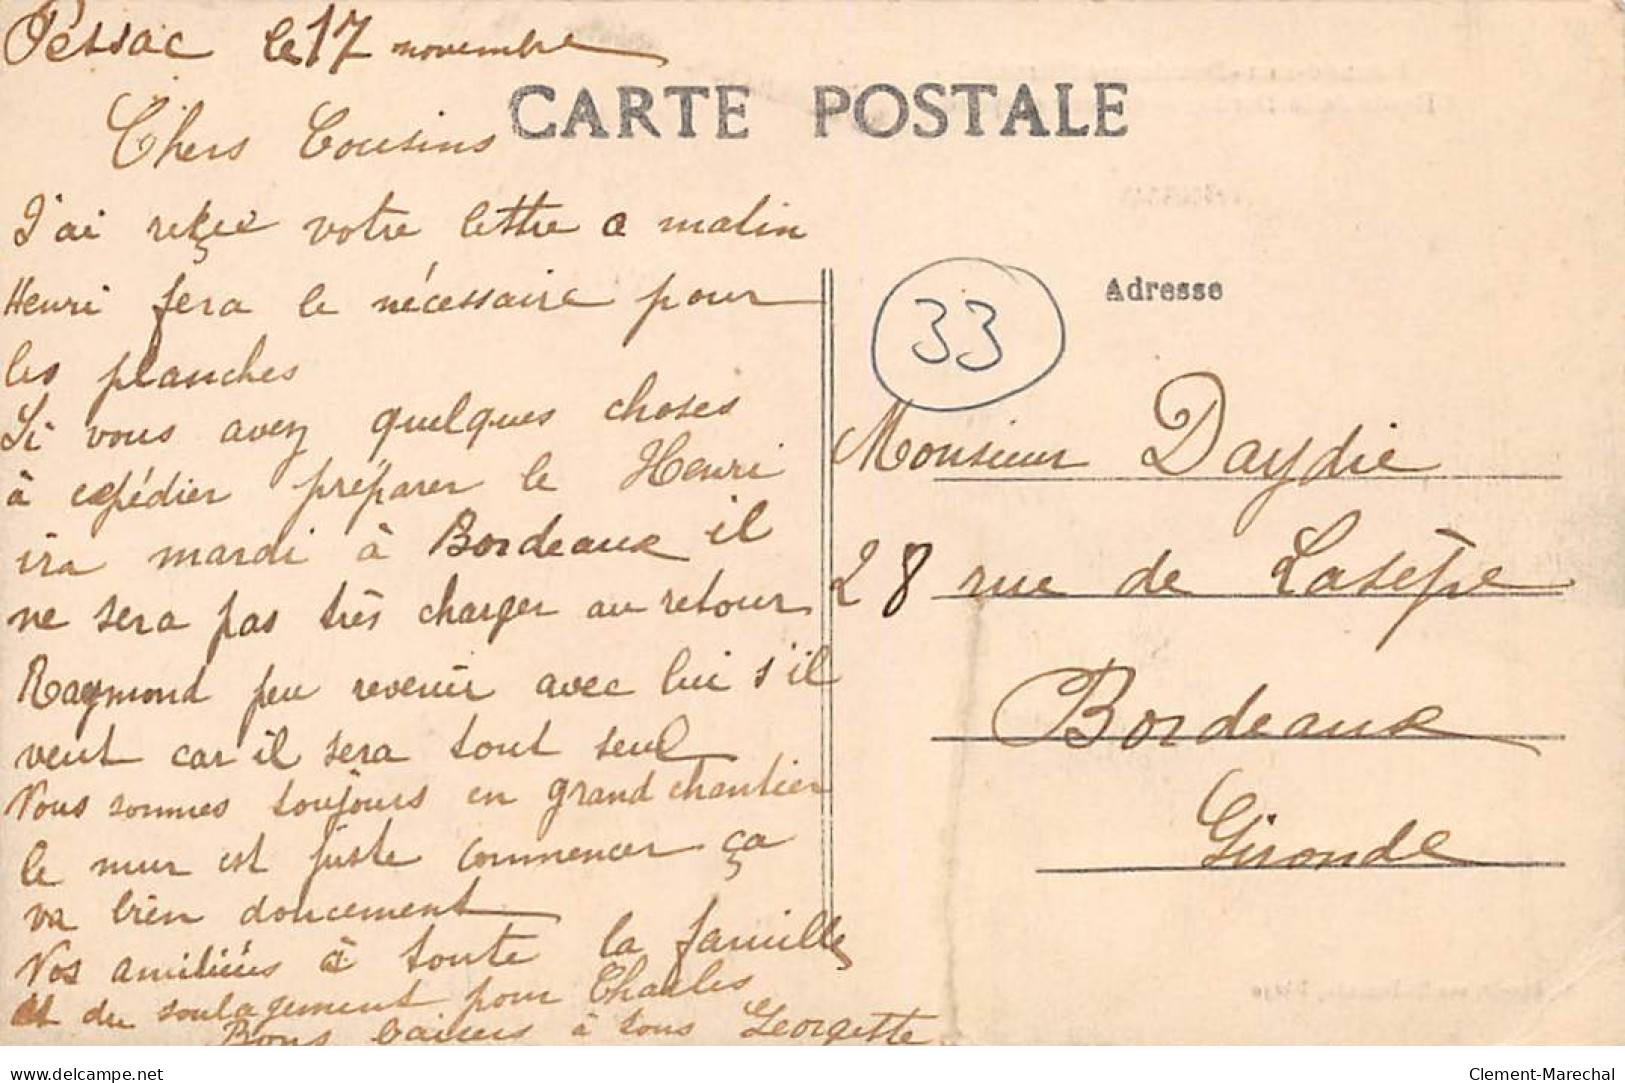 Pessac le 17 novembre
CARTE POSTALE
Chers Cousins
J'ai reçee votre lettre a matin
Henri fera le nécessaire pour
les planches
Si vous avez quelques choses
à expédier préparer le Henri
ira mardi à Bordeaux il
ne sera pas très charger au retour
Raymond peu revenir avec lui s'il
veut car il sera tout seul
Nous sommes toujours en grand chantier
le mur est juste commencer ça
va bien doucement
Nos amitiés à toute la famille
et du soulagement pour Charles
Bons baisers à tous Georgette
33
Adresse
Monsieur Daydie
28 rue de Lasèpe
Bordeaux
Gironde
www.delcampe.net
Clement-Marechal